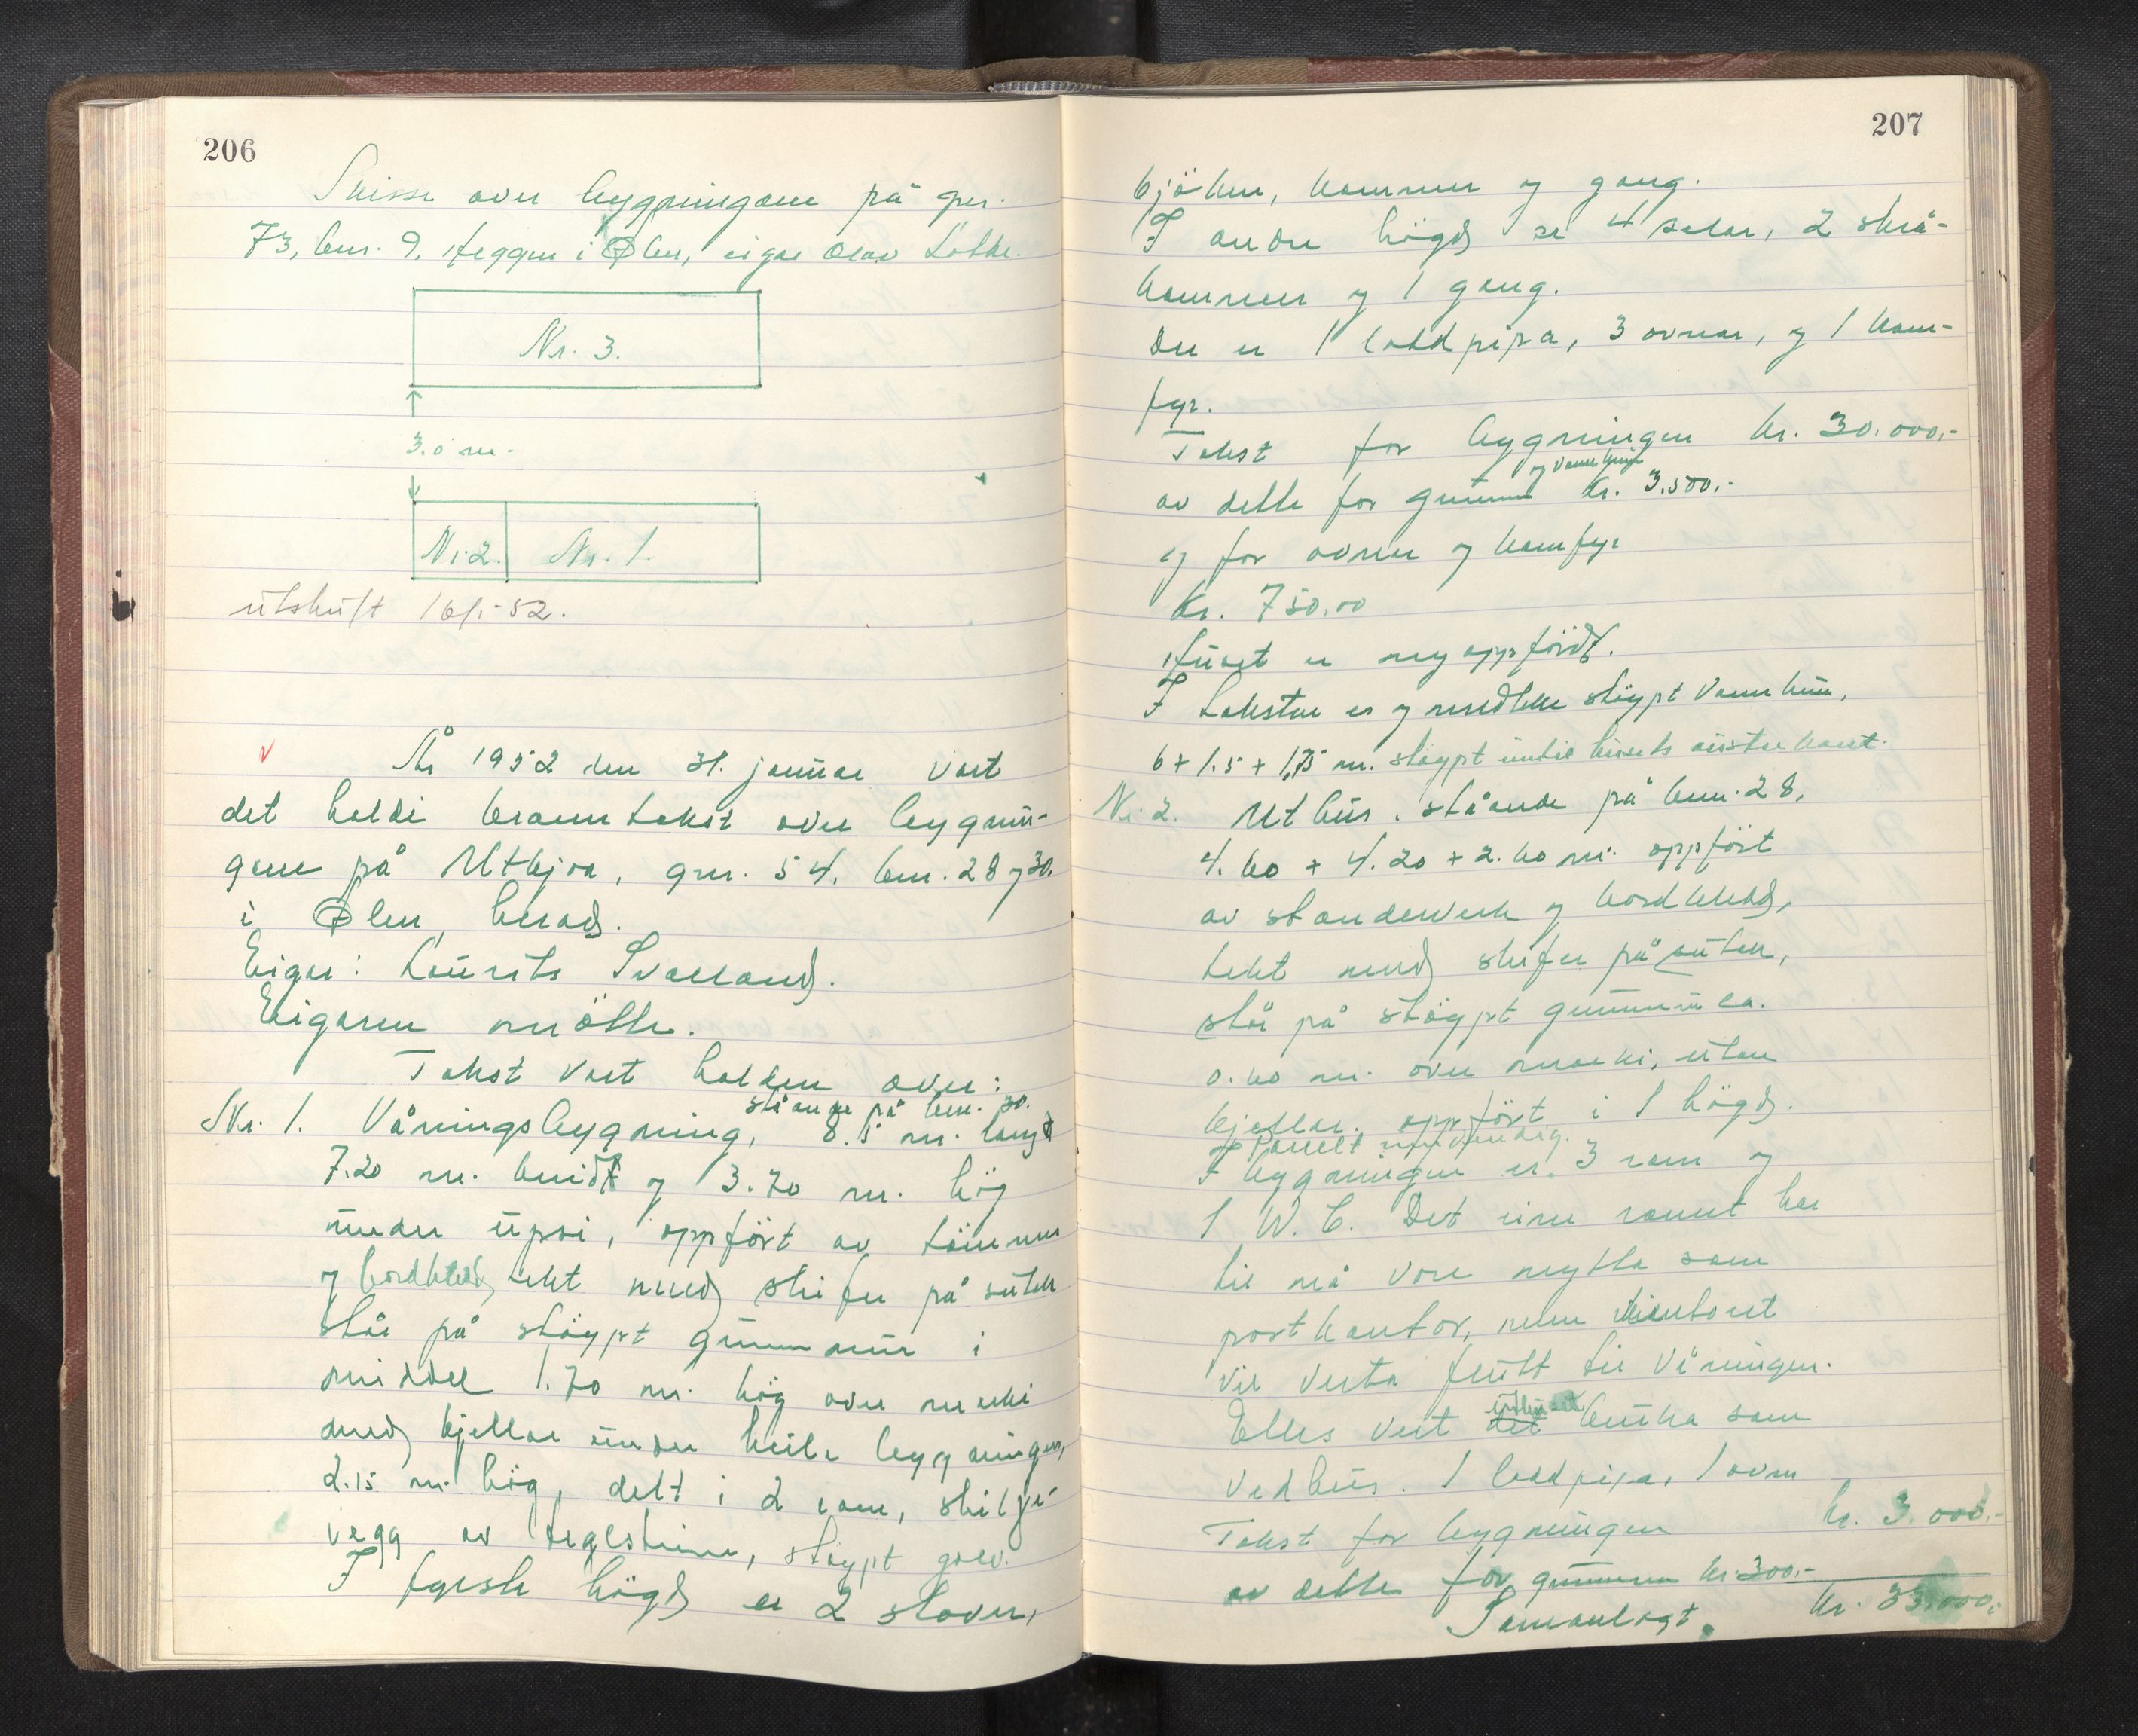 206
Skisse over bygningane på gnr.
73, bnr. 9, Heggen i Ølen, eigar Olav Løkke.
Nr. 3.
3.0 m.
Nr. 2. Nr. 1.
utskrift 16/1-52.
År 1952 den 31. januar vart
det haldi branntakst over bygnin-
gane på Utbjoa, gnr. 54, bnr. 28 og 30.
i Ølen herad.
Eigar: Laurits Svalland.
Eigaren møtte.
Takst vart halden over:
ståande på bnr. 30.
Nr. 1. Våningsbygning, 8.5 m. langt
7.20 m. breidt og 3.70 m. høg
under upsi, oppført av tømmer
og bordkledd, tekt med skifer på sutak
står på støypt grunnmur i
middel 1.70 m. høg over marki
med kjellar under heile bygningen,
2.15 m. høg, delt i 2 rom, skilje-
vegg av teglsteine, støypt golv.
I fyrste høgd er 2 stover,
207
kjøken, kammer og gang.
I andre høgd er 4 salar, 2 skrå-
kammer og 1 gang.
Der er 1 loddpipa, 3 ovnar, og 1 kom-
fyr.
Takst for bygningen kr. 30.000,-
og vannkum
av dette for grunnm kr. 3.500,-
og for ovner og komfyr
Kr. 750,00
Huset er nyoppfördt.
I taksten er og medteke støypt vannkum,
6 + 1.5 + 1,75 m. støypt inntil husets austre kant.
Nr. 2. Uthus, ståande på bnr. 28,
4.60 + 4.20 + 2.60 m. oppfört
av standerverk og bordkledd,
tekt med skifer på sutak,
står på støypt grunnmur ca.
0.60 m. over marki, utan
kjellar, oppfört i 1 høgd.
Panelt innvendig.
I bygningen er 3 rom og
1 W. C. Det eine romet har
til nå vore nytta som
postkontor, men kontoret
vil verta flutt til våningen.
Elles vert det bruka som
vedhus. 1 loddpipa, 1 ovn
Takst for bygningen kr. 3.000.-
av dette for grunnen kr. 300.-
Samanlagt. kr. 33.000,-